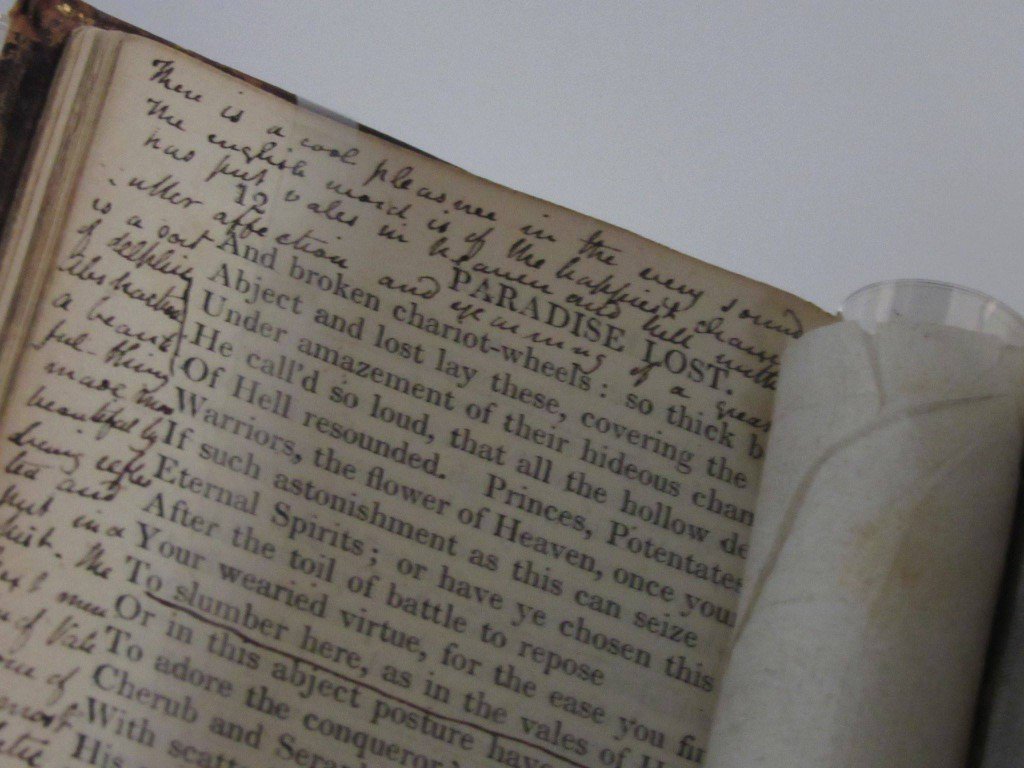 There is a cool pleasure in the very sound
The english word is of the happiest chance
has put vales in heaven and hell with
utter affection and yearning of a great
is a sort
of delphic
Abstraction
a beauti
ful - thing
made more
beautiful by
being reflec
ted and
put in a
Mist. The
next men
of Vale
one of
most
12
PARADISE LOST.
And broken chariot-wheels: so thick b
Abject and lost lay these, covering the
Under amazement of their hideous chan
He call'd so loud, that all the hollow de
Of Hell resounded. Princes, Potentates
Warriors, the flower of Heaven, once you
If such astonishment as this can seize
Eternal Spirits; or have ye chosen this
After the toil of battle to repose
Your wearied virtue, for the ease you fin
To slumber here, as in the vales of H
Or in this abject posture have
To adore the conqueror
Cherub and Serap
With scatt
His